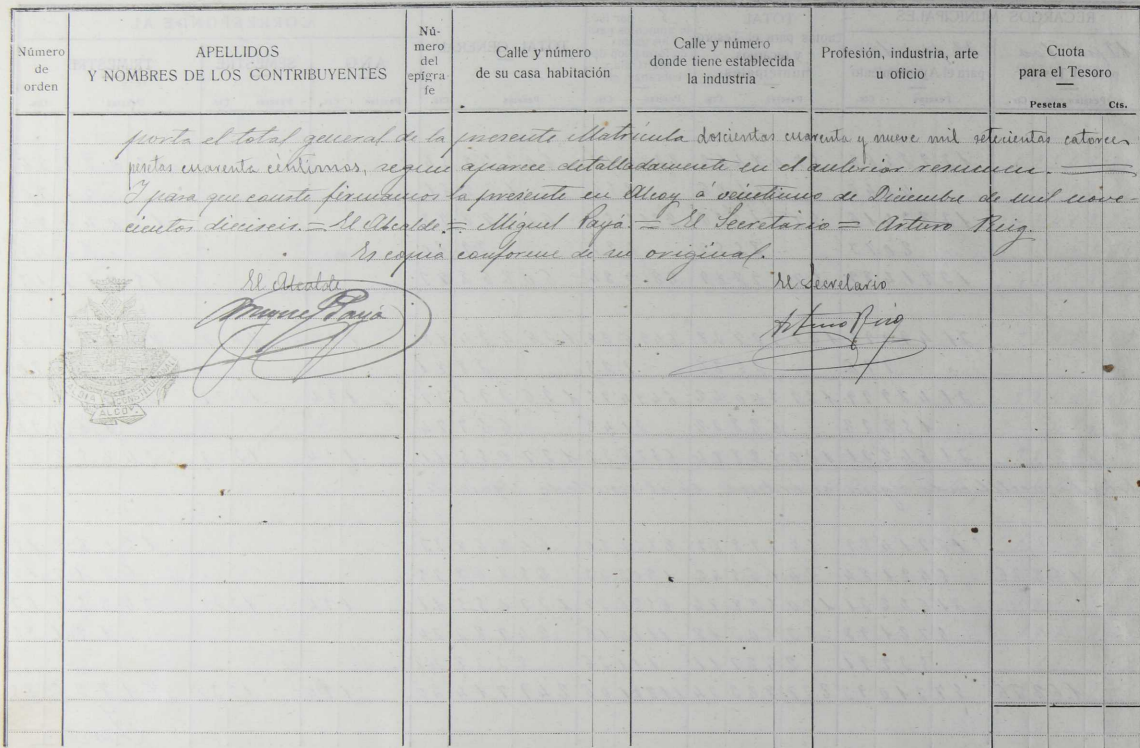 Número
de
orden
APELLIDOS
Y NOMBRES DE LOS CONTRIBUYENTES
Nú-
mero
del
epígra-
fe
Calle y número
de su casa habitación
Calle y número
donde tiene establecida
la industria
Profesión, industria, arte
u oficio
Cuota
para el Tesoro
Pesetas Cts.
porta el total general de la presente Matrícula doscientas cuarenta y nueve mil setecientas catorce
pesetas cuarenta céntimos, segun aparece detalladamente en el anterior resumen.
Y para que conste firmamos la presente en Alcoy á veintiuno de Diciembre de mil nove-
cientos dieciseis. = El Alcalde. = Miguel Payá. = El Secretario = Arturo Reig.
Es copia conforme de su original.
El Alcalde
El Secretario
Miguel Payá
Arturo Reig
ALCOY.